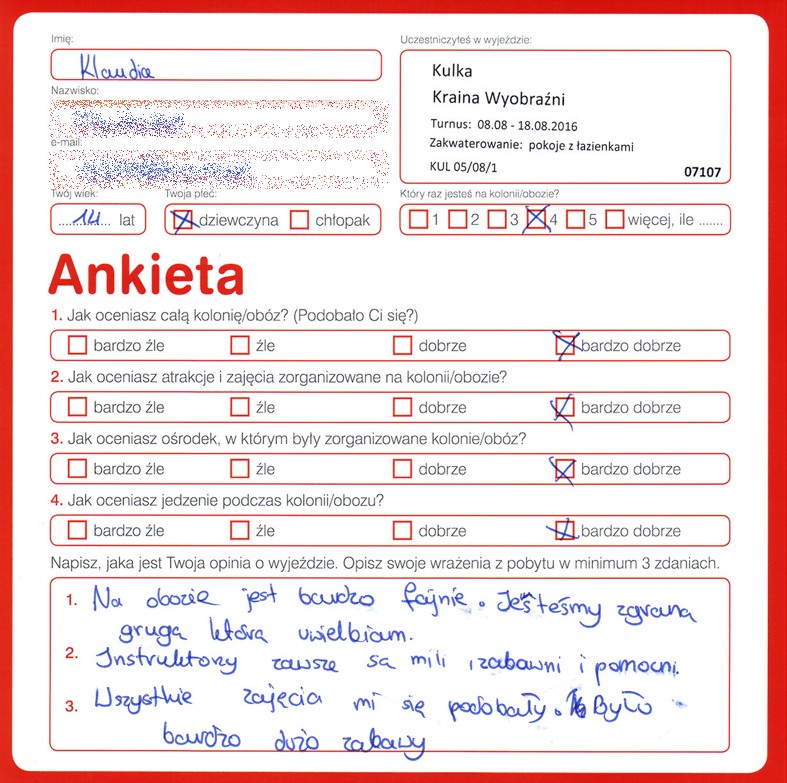 Imię:
Klaudia
Nazwisko:
e-mail:
Uczestniczyłeś w wyjeździe:
Kulka
Kraina Wyobraźni
Turnus: 08.08 - 18.08.2016
Zakwaterowanie: pokoje z łazienkami
KUL 05/08/1 07107
Twój wiek:
14 lat
Twoja płeć:
dziewczyna chłopak
Który raz jesteś na kolonii/obozie?
1 2 3 4 5 więcej, ile .......
Ankieta
1. Jak oceniasz całą kolonię/obóz? (Podobało Ci się?)
bardzo źle źle dobrze bardzo dobrze
2. Jak oceniasz atrakcje i zajęcia zorganizowane na kolonii/obozie?
bardzo źle źle dobrze bardzo dobrze
3. Jak oceniasz ośrodek, w którym były zorganizowane kolonie/obóz?
bardzo źle źle dobrze bardzo dobrze
4. Jak oceniasz jedzenie podczas kolonii/obozu?
bardzo źle źle dobrze bardzo dobrze
Napisz, jaka jest Twoja opinia o wyjeździe. Opisz swoje wrażenia z pobytu w minimum 3 zdaniach.
1. Na obozie jest bardzo fajnie. Jesteśmy zgraną
grupą którą uwielbiam.
2. Instruktorzy zawsze są mili, zabawni i pomocni.
3. Wszystkie zajęcia mi się podobały. Było
bardzo dużo zabawy